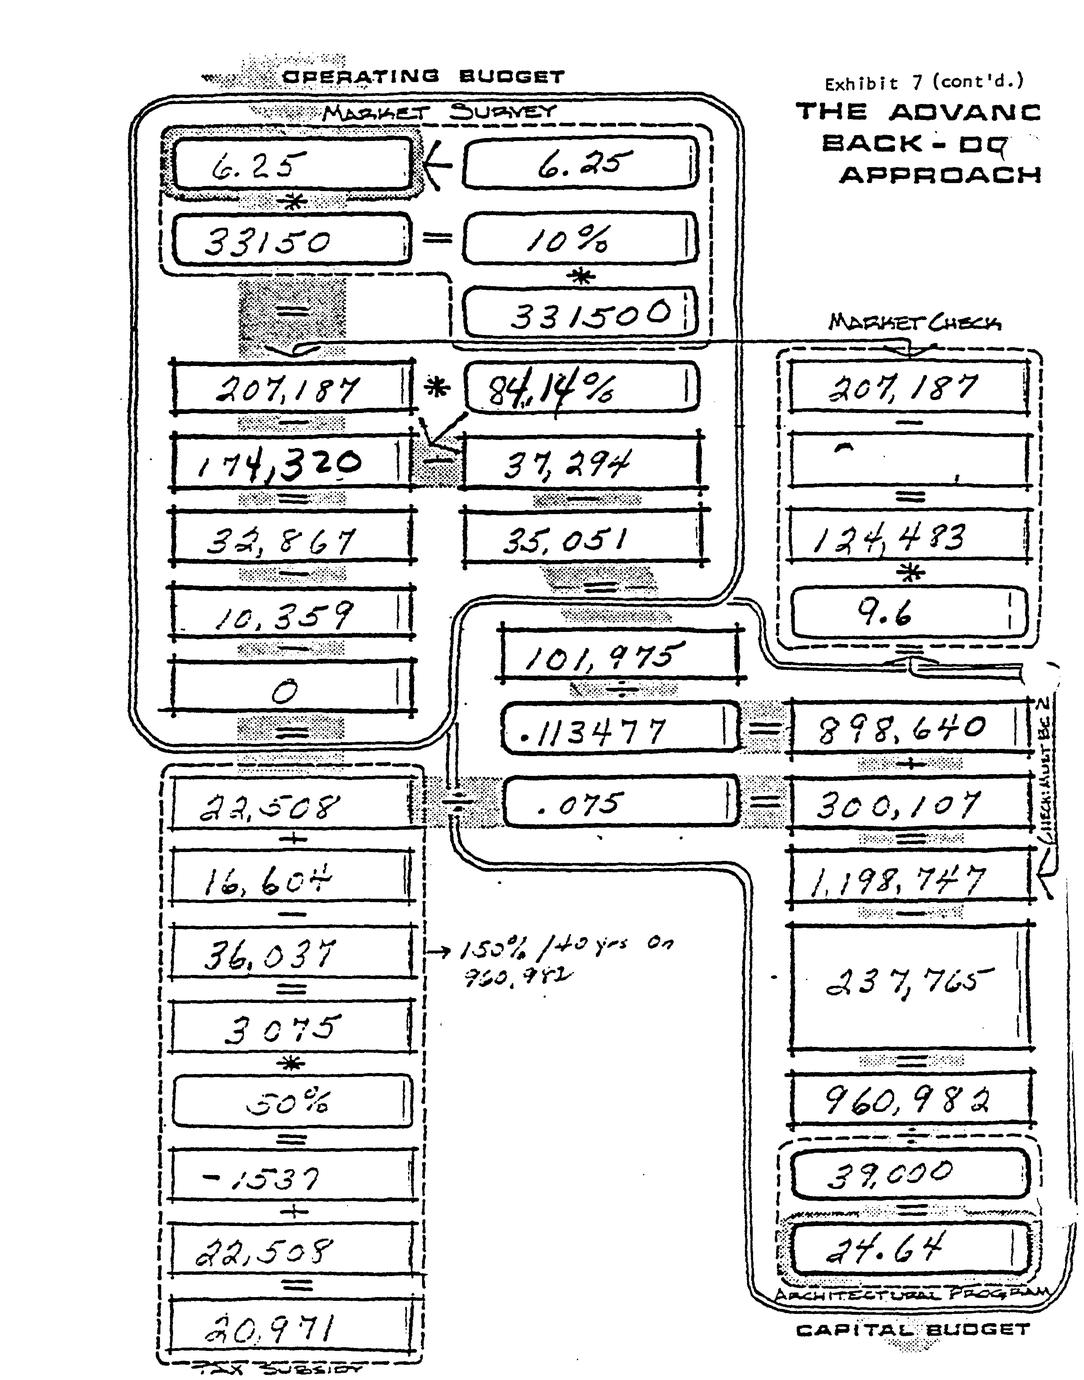 OPERATING BUDGET
Exhibit 7 (cont'd.)
THE ADVANC
BACK-DO
APPROACH
MARKET SURVEY
6.25 ← 6.25
*
33150 = 10%
*
= 331500
MARKET CHECK
207,187 * 84.14%
-
174,320 - 37,294
= -
32,867 35,051
- =
10,359
-
0
=
207,187
-
=
124,483
*
9.6
=
101,975
÷
.113477 = 898,640
+
22,508 ÷ .075 = 300,107
=
CHECK: MUST BE ≥
1,198,747
-
237,765
=
960,982
÷
39,000
=
24.64
ARCHITECTURAL PROGRAM
CAPITAL BUDGET
+
16,604
-
36,037 → 150% / 40 yrs on
960,982
=
3075
*
50%
=
-1537
+
22,508
=
20,971
TAX SUBSIDY